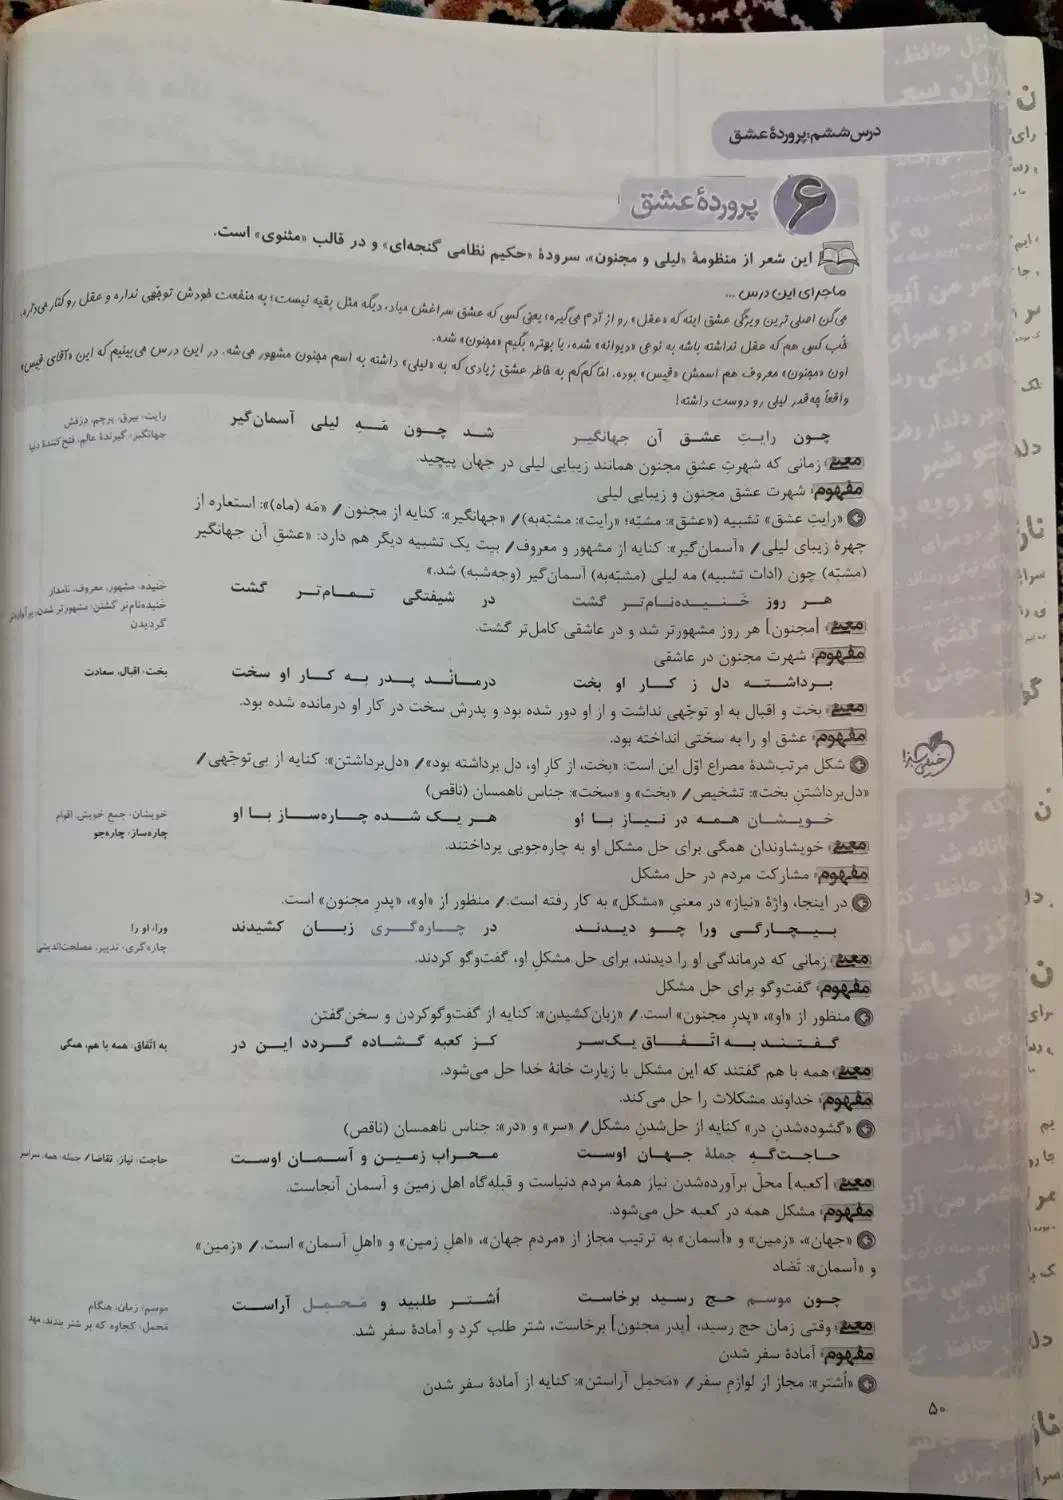 درس ششم: پروردهٔ عشق
۶ پروردهٔ عشق
این شعر از منظومهٔ «لیلی و مجنون»، سرودهٔ «حکیم نظامی گنجه‌ای» و در قالب «مثنوی» است.
ماجرای این درس ...
می‌گن اصلی ترین ویژگی عشق اینه که «عقل» رو از آدم می‌گیره؛ یعنی کسی که عشق سراغش میاد، دیگه مثل بقیه نیست؛ به منفعت خودش توجّهی نداره و عقل رو کنار می‌ذاره.
خُب کسی هم که عقل نداشته باشه به نوعی «دیوانه» شده، یا بهتره بگیم «مجنون» شده.
اون «مجنون» معروف هم اسمش «قیس» بوده. امّا کم‌کم به خاطر عشق زیادی که به «لیلی» داشته به اسم مجنون مشهور می‌شه. در این درس می‌بینیم که این «آقای قیس»
واقعاً چه‌قدر لیلی رو دوست داشته!
چون رایتِ عشق آن جهانگیر شد چون مَهِ لیلی آسمان‌گیر
رایت: بیرق، پرچم، دِرَفش
جهانگیر: گیرندهٔ عالم، فتح‌کنندهٔ دنیا
معنی: زمانی که شهرتِ عشقِ مجنون همانند زیبایی لیلی در جهان پیچید.
مفهوم: شهرت عشق مجنون و زیبایی لیلی
«رایتِ عشق» تشبیه («عشق»: مشبّه؛ «رایت»: مشبّه‌به) / «جهانگیر»: کنایه از مجنون / «مَه (ماه)»: استعاره از
چهرهٔ زیبای لیلی / «آسمان‌گیر»: کنایه از مشهور و معروف / بیت یک تشبیه دیگر هم دارد: «عشقِ آن جهانگیر
(مشبّه) چون (ادات تشبیه) مه لیلی (مشبّه‌به) آسمان‌گیر (وجه‌شبه) شد.»
هر روز خَنیده‌نام‌تر گشت در شیفتگی تمام‌تر گشت
خَنیده: مشهور، معروف، نامدار
خنیده‌نام‌تر گشتن: مشهورتر شدن، پرآوازه‌تر
گردیدن
معنی: [مجنون] هر روز مشهورتر شد و در عاشقی کامل‌تر گشت.
مفهوم: شهرت مجنون در عاشقی
برداشته دل ز کار او بخت درماند پدر به کار او سخت
بخت: اقبال، سعادت
معنی: بخت و اقبال به او توجّهی نداشت و از او دور شده بود و پدرش سخت در کار او درمانده شده بود.
مفهوم: عشق او را به سختی انداخته بود.
شکل مرتب‌شدهٔ مصراع اوّل این است: «بخت، از کارِ او، دل برداشته بود» / «دل‌برداشتن»: کنایه از بی‌توجّهی /
«دل‌برداشتنِ بخت»: تشخیص / «بخت» و «سخت»: جناس ناهمسان (ناقص)
خویشان همه در نیاز با او هر یک شده چاره‌ساز با او
خویشان: جمع خویش، اقوام
چاره‌ساز: چاره‌جو
معنی: خویشاوندان همگی برای حل مشکل او به چاره‌جویی پرداختند.
مفهوم: مشارکت مردم در حل مشکل
در اینجا، واژهٔ «نیاز» در معنیِ «مشکل» به کار رفته است. / منظور از «او»، «پدرِ مجنون» است.
بیچارگی ورا چو دیدند در چاره‌گری زبان کشیدند
ورا: او را
چاره‌گری: تدبیر، مصلحت‌اندیشی
معنی: زمانی که درماندگی او را دیدند، برای حل مشکلِ او، گفت‌وگو کردند.
مفهوم: گفت‌وگو برای حل مشکل
منظور از «او»، «پدرِ مجنون» است. / «زبان‌کشیدن»: کنایه از گفت‌وگوکردن و سخن‌گفتن
گفتند به اتّفاق یک‌سر کز کعبه گشاده گردد این در
به اتّفاق: همه با هم، همگی
معنی: همه با هم گفتند که این مشکل با زیارت خانهٔ خدا حل می‌شود.
مفهوم: خداوند مشکلات را حل می‌کند.
«گشوده‌شدنِ در» کنایه از حل‌شدنِ مشکل / «سر» و «در»: جناس ناهمسان (ناقص)
حاجت‌گهِ جملهٔ جهان اوست محراب زمین و آسمان اوست
حاجت: نیاز، تقاضا / جمله: همه، سراسر
معنی: [کعبه] محلّ برآورده‌شدن نیاز همهٔ مردم دنیاست و قبله‌گاه اهل زمین و آسمان آنجاست.
مفهوم: مشکل همه در کعبه حل می‌شود.
«جهان»، «زمین» و «آسمان» به ترتیب مجاز از «مردمِ جهان»، «اهلِ زمین» و «اهلِ آسمان» است. / «زمین»
و «آسمان»: تَضاد
چون موسم حج رسید برخاست اُشتر طلبید و مَحمِل آراست
موسم: زمان، هنگام
مَحمل: کجاوه که بر شتر بندند، مهد
معنی: وقتی زمان حج رسید، [پدر مجنون] برخاست، شتر طلب کرد و آمادهٔ سفر شد.
مفهوم: آمادهٔ سفر شدن
«اُشتر»: مجاز از لوازمِ سفر / «مَحمِل آراستن»: کنایه از آمادهٔ سفر شدن
۵۰